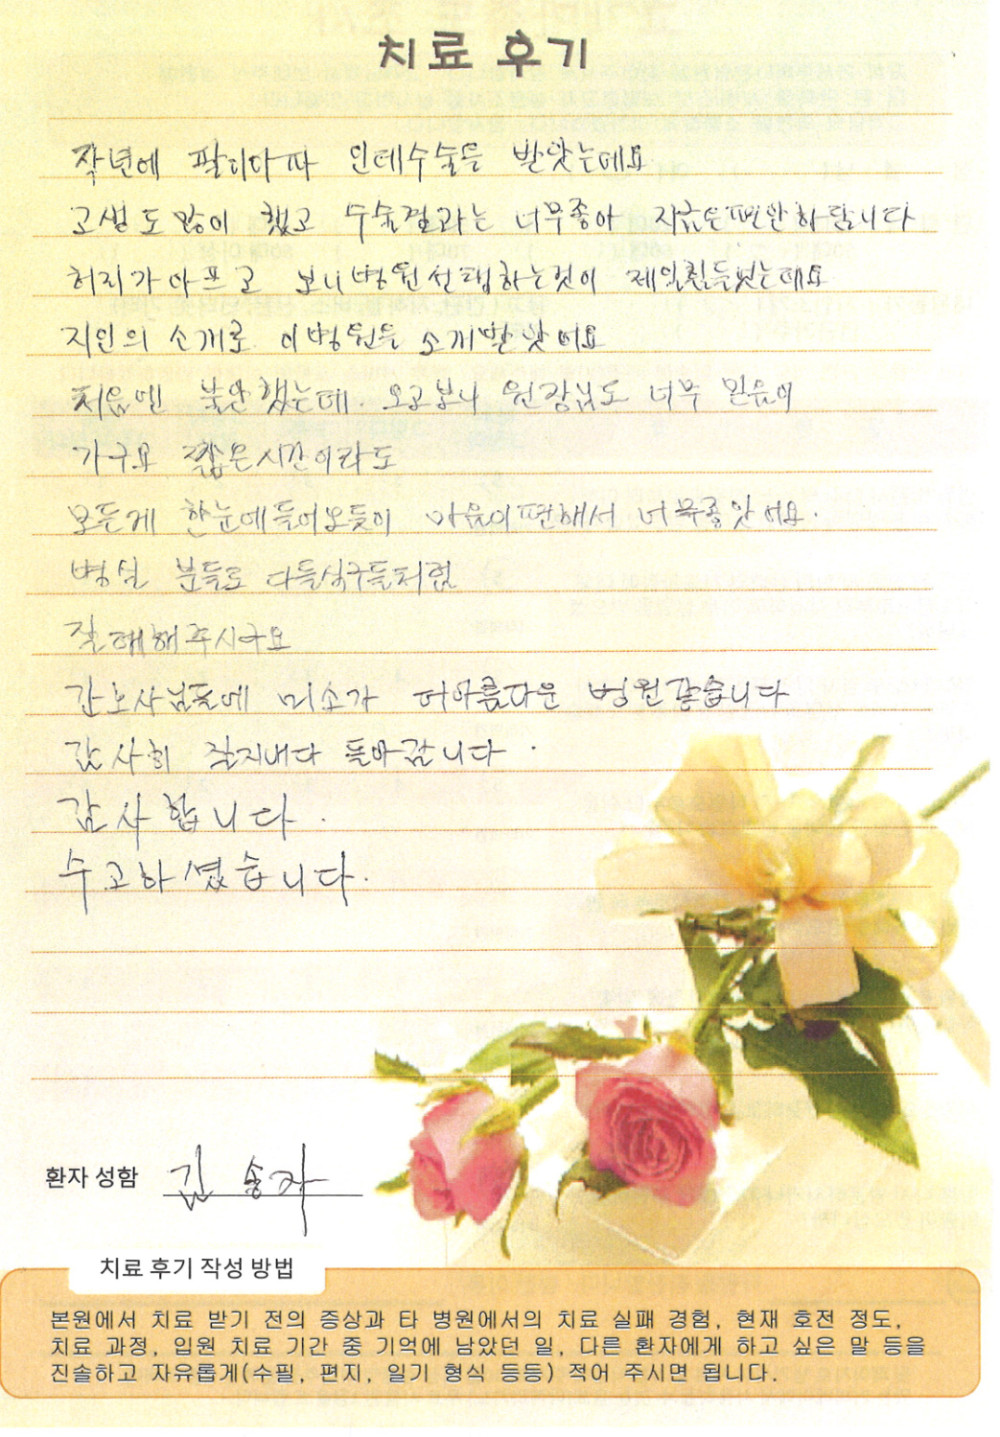 치료 후기
작년에 팔이다따 인데수술을 받앗는데요
고생도 많이 했고 수술결과는 너무좋아 지금은편안하답니다
허리가아프고 보니병원선택하는것이 제일힘들엇는데요
지인의 소개로 이병원을 소개받앗어요
처음엔 불안했는데. 오고보니 원장님도 너무 믿음이
가구요 짧은시간이라도
모든게 한눈에들어오듯이 마음이편해서 너무좋앗어요.
병실 분들도 다들식구들처럼
잘해주시구요
간호사님들에 미소가 더아름다운 병원같습니다
감사히 잘지내다 돌아갑니다.
감사합니다.
수고하셨습니다.
환자 성함 김송자
치료 후기 작성 방법
본원에서 치료 받기 전의 증상과 타 병원에서의 치료 실패 경험, 현재 호전 정도,
치료 과정, 입원 치료 기간 중 기억에 남았던 일, 다른 환자에게 하고 싶은 말 등을
진솔하고 자유롭게(수필, 편지, 일기 형식 등등) 적어 주시면 됩니다.